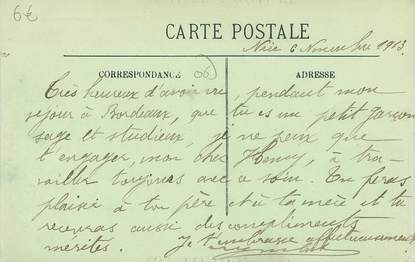 6€
CARTE POSTALE
Nice 6 Novembre 1913
CORRESPONDANCE
06
ADRESSE
Très heureux d'avoir vu, pendant mon
séjour à Bordeaux, que tu es un petit garçon
sage et studieux, je ne peux que
t'engager, mon cher Henry, à tra-
vailler toujours avec soin. Tu feras
plaisir à ton père et à ta mère et tu
recevras aussi des compliments
mérités. Je t'embrasse affectueusement